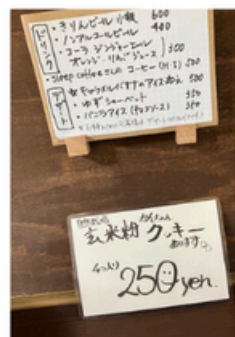 ドリンク
・きりんビール 小瓶 600
・ノンアルコールビール 400
・コーラ ジンジャーエール
オレンジ・りんごジュース 300
・sleep coffeeさんの コーヒー(H・I) 500
デザート
キャラメルバナナのアイス 500
・ゆずシャーベット 350
・バニラアイス (チョコソース) 350
玄米粉 クッキー
あります
250yen.